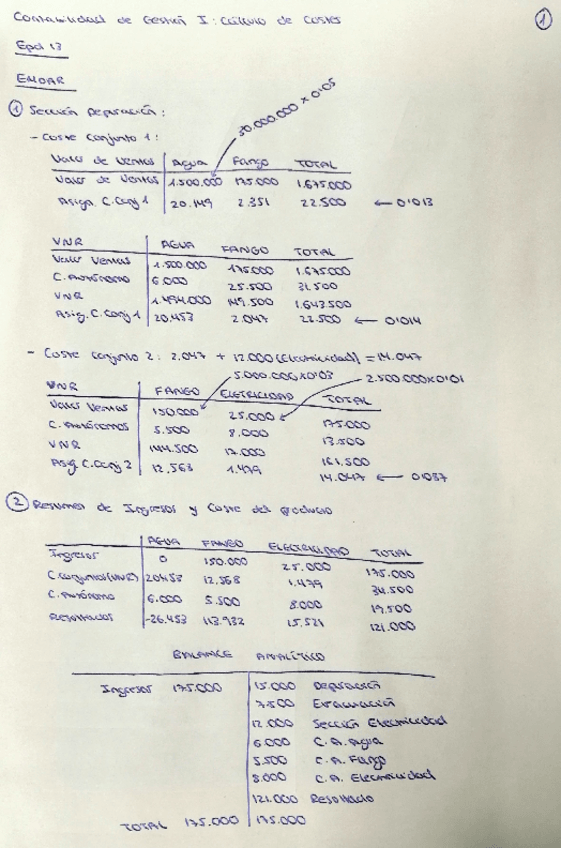 Contabilidad de Gestión I: Cálculo de Costes
1
Epd 13
EMDAR
① Sección Depuración:
30.000.000 x 0'05
- Coste Conjunto 1:
Valor de Ventas Agua Fango TOTAL
Valor de Ventas 1.500.000 175.000 1.675.000
Asign. C. Conj 1 20.149 2.351 22.500 ← 0'013
VNR AGUA FANGO TOTAL
Valor Ventas 1.500.000 175.000 1.675.000
C. Autónomo 6.000 25.500 31.500
VNR 1.494.000 149.500 1.643.500
Asig. C. Conj 1 20.453 2.047 22.500 ← 0'014
- Coste Conjunto 2: 2.047 + 12.000 (Electricidad) = 14.047
5.000.000x0'03 2.500.000x0'01
VNR FANGO ELETRICIDAD TOTAL
Valor Ventas 150.000 25.000 175.000
C. Autónomos 5.500 8.000 13.500
VNR 144.500 17.000 161.500
Asig C. Conj 2 12.563 1.479 14.047 ← 0'087
② Resumen de Ingresos y Coste del producto
AGUA FANGO ELECTRICIDAD TOTAL
Ingresos 0 150.000 25.000 175.000
C. Conjuntos (VNR) 20.453 12.568 1.479 34.500
C. Autónomo 6.000 5.500 8.000 19.500
Resultados -26.453 113.932 15.521 121.000
BALANCE ANALÍTICO
Ingresos 175.000 15.000 Depuración
7.500 Evacuación
12.000 Sección Electricidad
6.000 C.A. Agua
5.500 C.A. Fango
8.000 C.A. Electricidad
121.000 Resultado
TOTAL 175.000 175.000